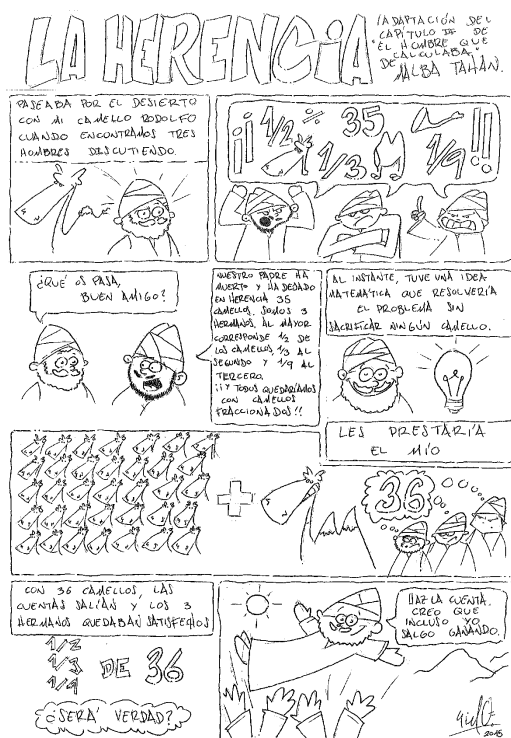 LA HERENCIA
(ADAPTACIÓN DEL
CAPÍTULO IV DE
"EL HOMBRE QUE
CALCULABA"
DE MALBA TAHAN.
PASEABA POR EL DESIERTO
CON MI CAMELLO RODOLFO
CUANDO ENCONTRAMOS TRES
HOMBRES DISCUTIENDO.
¡¡ 1/2 ÷ 35
1/3 1/9 !!
¿QUÉ OS PASA,
BUEN AMIGO?
NUESTRO PADRE HA
MUERTO Y HA DEJADO
EN HERENCIA 35
CAMELLOS, SOMOS 3
HERMANOS. AL MAYOR
CORRESPONDE 1/2 DE
LOS CAMELLOS, 1/3 AL
SEGUNDO Y 1/9 AL
TERCERO.
¡¡Y TODOS QUEDARÍAMOS
CON CAMELLOS
FRACCIONADOS!!
AL INSTANTE, TUVE UNA IDEA
MATEMÁTICA QUE RESOLVERÍA
EL PROBLEMA SIN
SACRIFICAR NINGÚN CAMELLO.
LES PRESTARÍA
EL MÍO
+
36
CON 36 CAMELLOS, LAS
CUENTAS SALÍAN Y LOS 3
HERMANOS QUEDABAN SATISFECHOS
1/2
1/3 DE 36
1/9
¿SERÁ VERDAD?
HAZ LA CUENTA.
CREO QUE
INCLUSO YO
SALGO GANANDO.
2015